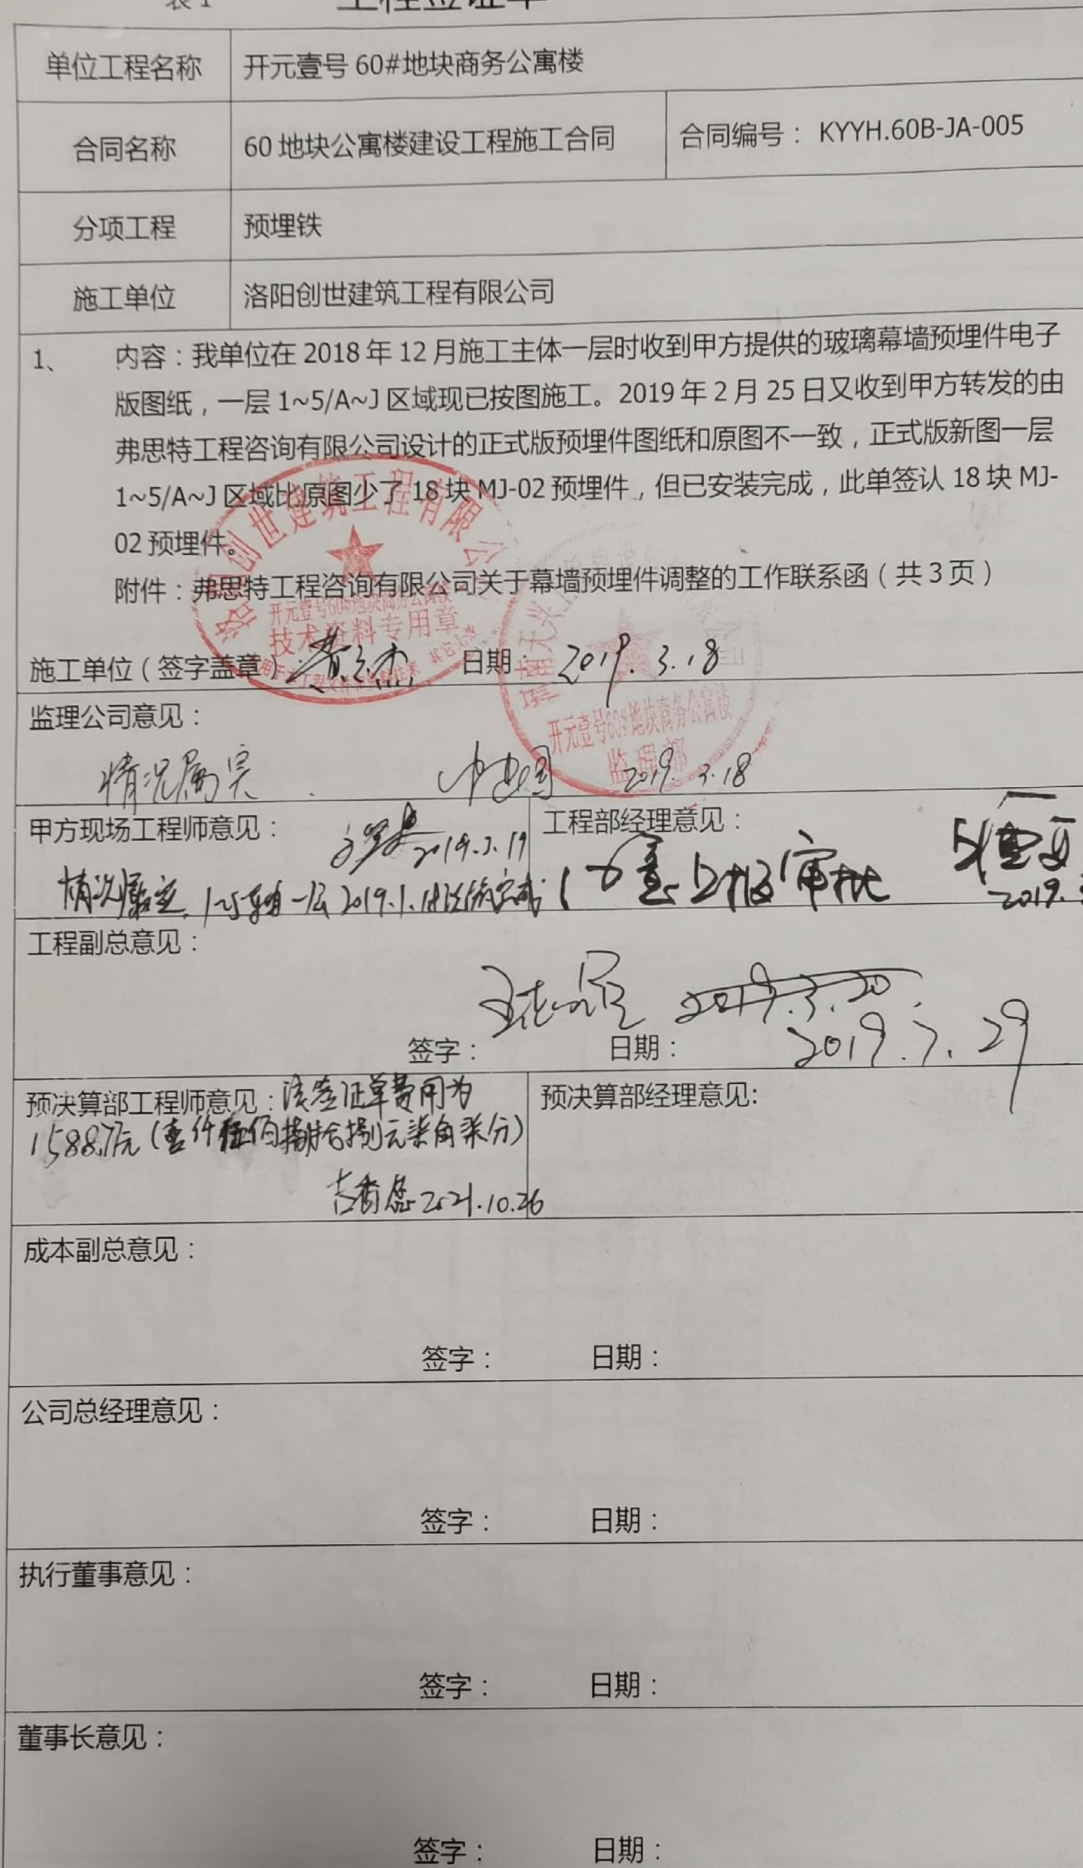 表1 工程签证单
单位工程名称 开元壹号 60#地块商务公寓楼
合同名称 60 地块公寓楼建设工程施工合同 合同编号： KYYH.60B-JA-005
分项工程 预埋铁
施工单位 洛阳创世建筑工程有限公司
1、 内容：我单位在 2018 年 12 月施工主体一层时收到甲方提供的玻璃幕墙预埋件电子
版图纸，一层 1~5/A~J 区域现已按图施工。2019 年 2 月 25 日又收到甲方转发的由
弗思特工程咨询有限公司设计的正式版预埋件图纸和原图不一致，正式版新图一层
1~5/A~J 区域比原图少了 18 块 MJ-02 预埋件，但已安装完成，此单签认 18 块 MJ-
02 预埋件。
附件：弗思特工程咨询有限公司关于幕墙预埋件调整的工作联系函（共 3 页）
洛阳创世建筑工程有限公司
开元壹号60#地块商务公寓楼
技术资料专用章
施工单位（签字盖章）： 日期： 2019.3.18
开元壹号60#地块商务公寓楼
监理部
监理公司意见：
情况属实 2019.3.18
甲方现场工程师意见： 2019.3.19
情况属实 1~5轴一层 2019.1.
工程部经理意见：
同意上报审批
2019.
工程副总意见：
2019.3.20
签字： 日期： 2019.3.29
预决算部工程师意见：该签证单费用为
1588.77元（壹仟伍佰捌拾捌元柒角柒分）
2021.10.26
预决算部经理意见:
成本副总意见：
签字： 日期：
公司总经理意见：
签字： 日期：
执行董事意见：
签字： 日期：
董事长意见：
签字： 日期：